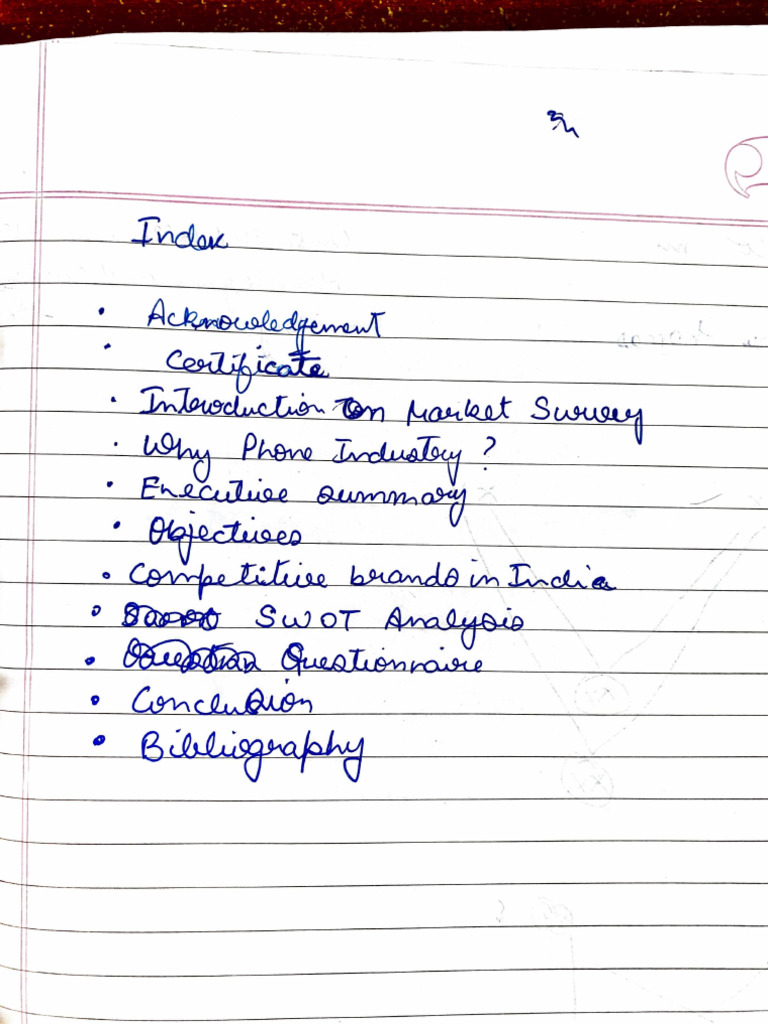 Index
• Acknowledgement
• Certificate
• Introduction On Market Survey
• Why Phone Industry ?
• Executive summary
• Objectives
• Competitive brands in India
• SWOT Analysis
• Questionnaire
• Conclusion
• Bibliography